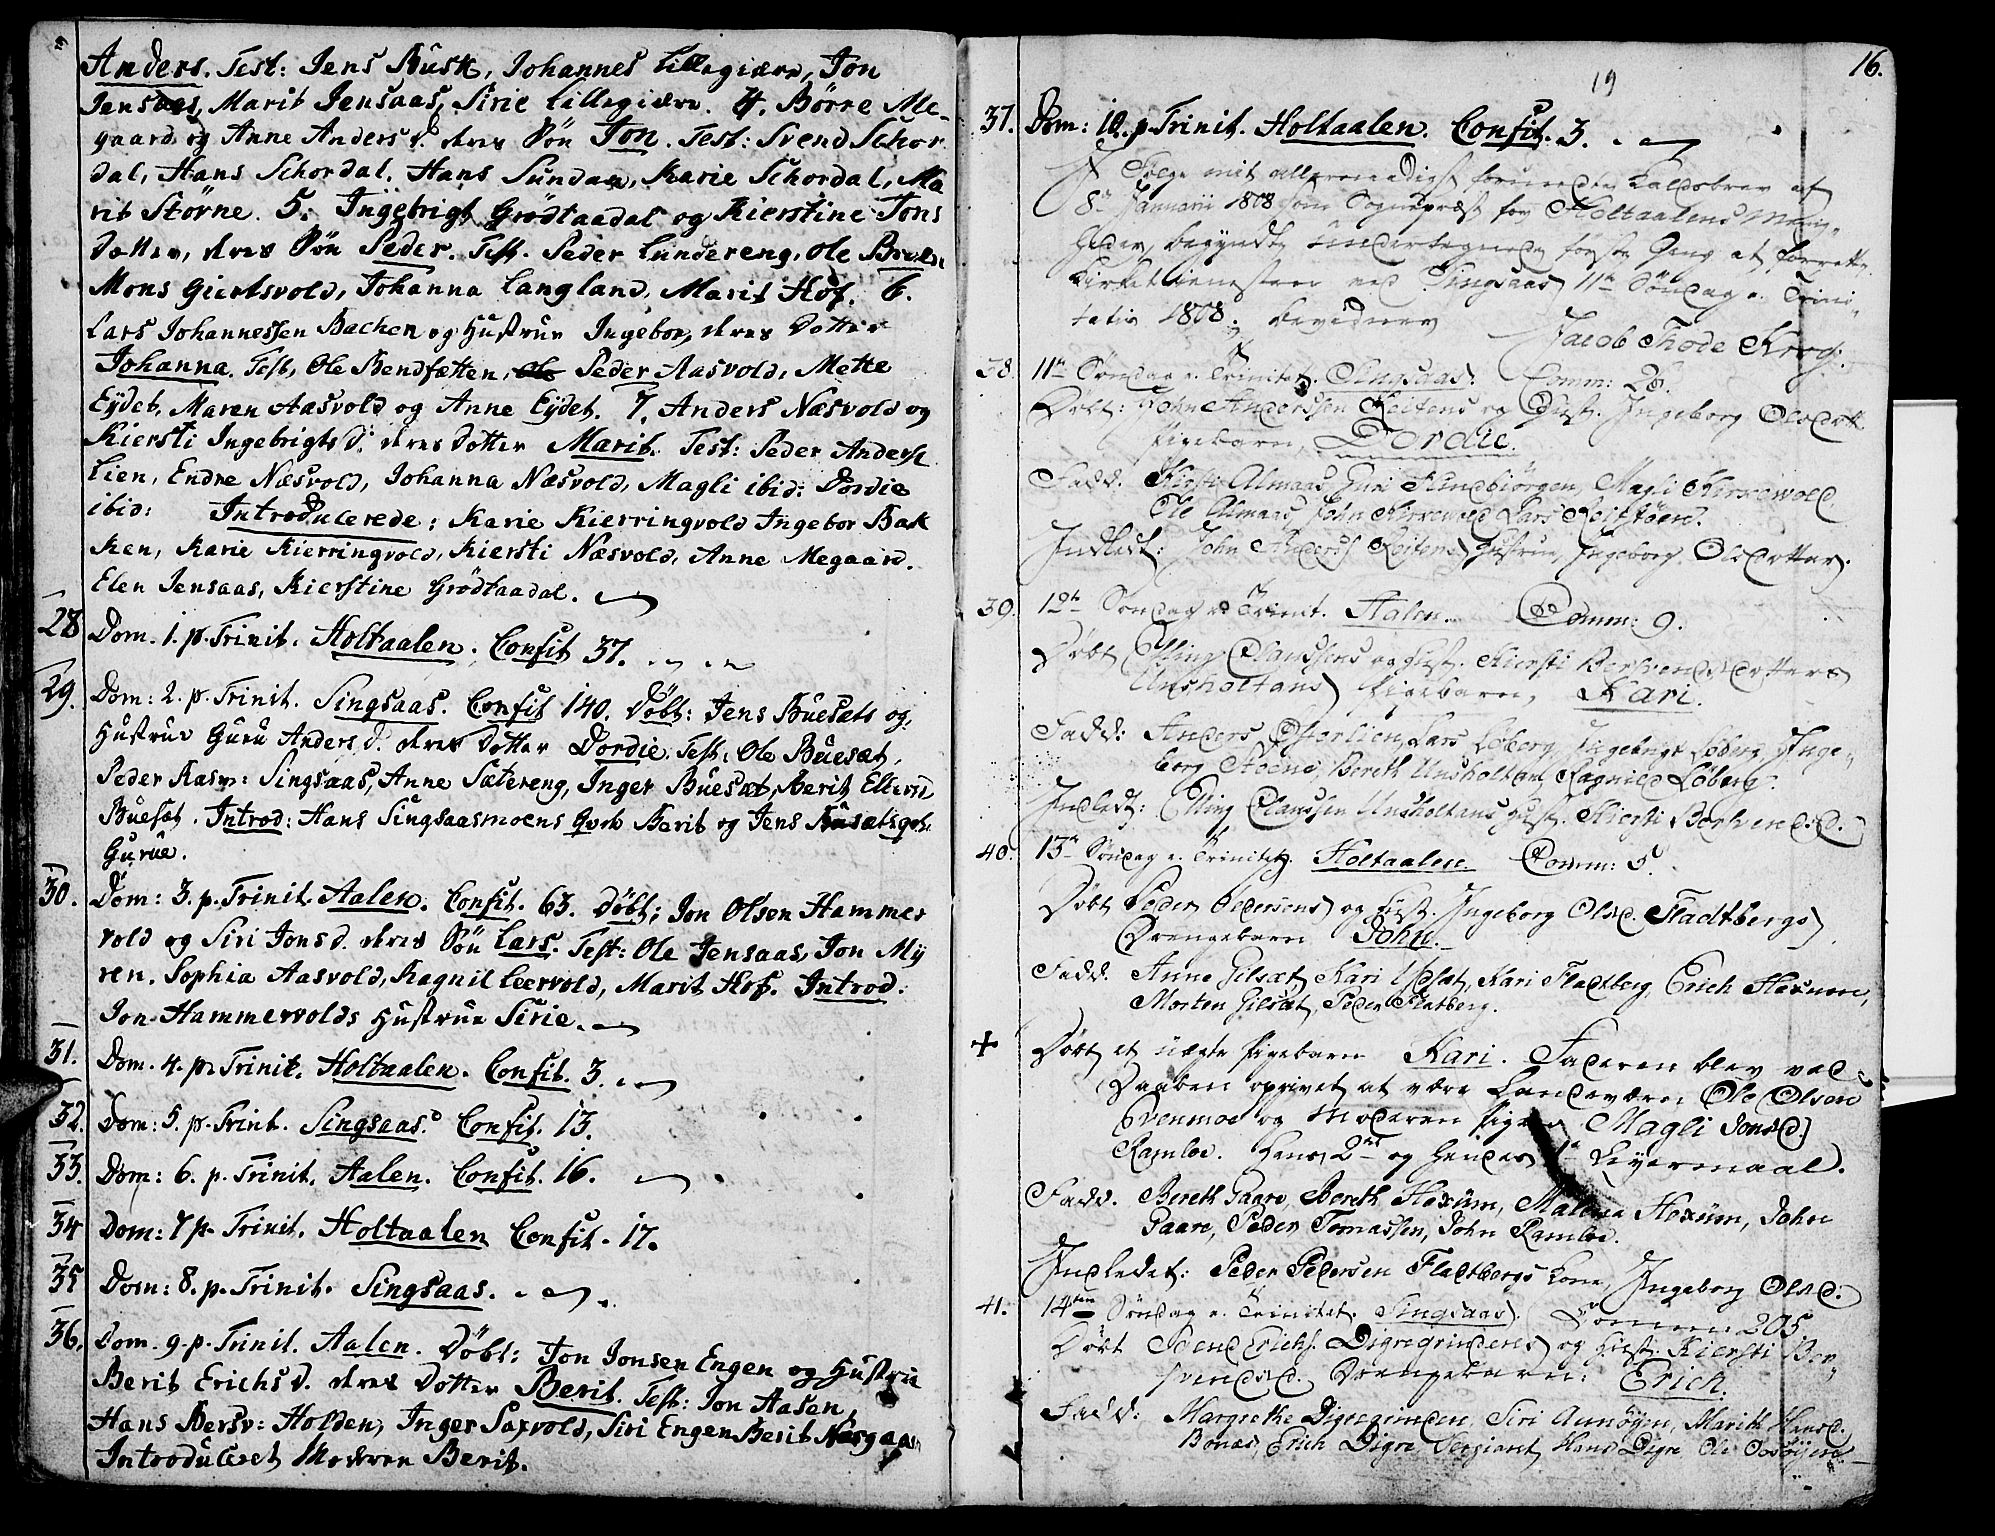 Anders. Test: Jens Busk, Johannes Lillegiære, Jon
Jensaas, Marit Jensaas, Sirie Lillegiære. 4. Børre Me-
gaard og Anne Anders d. deres Søn Jon. Test: Svend Schor-
dal, Hans Schordal. Hans Sundan, Karie Schordal, Ma
rit Størne. 5. Ingebrigt Grødtaadal og Kierstine Jons
Dotter, deres Søn Peder. Test. Peder Lundereng, Ole
Mons Giertsvold, Johanna Langland, Marit Hof. 6.
Lars Johannessen Bachen og Hustrue Ingebor, deres Dotter
Johanna. Test, Ole Bendsætten, Ole Peder Aasvold, Mette
Eÿdet, Maren Aasvold og Anne Eÿdet. 7. Anders Næsvold og
Kiersti Ingebrigts d: deres Dotter Marit. Test: Peder Anders
Lien, Endre Næsvold, Johanna Næsvold, Magli ibid: Dordie
ibid: Introducerede: Karie Kierringvold Ingebor Bak
ken, Karie Kierringvold, Kiersti Næsvold, Anne Megaard.
Elen Jensaas, Kierstine Grødtaadal.
28 Dom. 1. p. Trinit. Holtaalen. Confit 37.
29. Dom: 2. p. Trinit. Singsaas. Confit 140. Døbt: Jens Buesæts og
Hustrue Guru Anders d. deres Dotter Dordie. Test: Ole Buesæt,
Peder Rasm: Singsaas, Anne Sætereng, Inger Buesæt, Berit Elters
Buesæt. Introd: Hans Singsaasmoens Berit og Jens
Gurue.
30. Dom: 3. p. Trinit. Aalen. Confit. 63. Døbt: Jon Olsen Hammer
vold og Siri Jons d. deres Søn Lars. Test: Ole Jensaas, Jon Mÿ
ren. Sophia Aasvold, Ragnil Leervold, Marit Hof. Introd:
Jon Hammervolds Hustrue Sirie.
31. Dom. 4. p. Trinit. Holtaalen. Confit. 3.
32. Dom: 5. p. Trinit. Singsaas. Confit. 13.
33. Dom: 6. p. Trinit. Aalen. Confit. 16.
34 Dom: 7 p. Trinit. Holtaalen Confit. 17.
35 Dom: 8. p. Trinit. Singsaas.
36. Dom. 9. p. Trinit. Aalen. Døbt: Jon Jonsen Engen og Hustrue
Berit Erichs d. deres Dotter Berit. Test: Jon Aasen,
Hans Bersv: Holden, Inger Saxvold, Siri Engen Berit
Introduceret Moderen Berit.
16.
19
37. Dom: 10. p. Trinit. Holtaalen. Confit. 3.
Følge mit allernaadigst forundte Kaldsbrev af
8de Januarii 1808 som Sognepræst for Holtaalens Menig-
heder, begyndte undertegnede første Gang at forrette
Kirketjenesten ved Singsaas 11te Søndag e. Trini-
tatis 1808, bevidner
Jacob Thode Krog.
38. 11te Søndag e. Trinitat. Singsaas. Comm: 28.
Døbt: John Anderssen Reitens og Hust. Ingeborg Olsdott
Pigebarn, Dordie.
Fadd. Kirsti Almaas, Guri Hundbiörgen, Magli Kirrewold
Ole Almaas, John Kirrewold Lars Reitstøen.
Indledt: John Anderss Reitens Hustrue, Ingeborg Olsdotter.
39. 12te Søndag e. Trinit. Aalen. Comm: 9.
Døbt Elling Clausens og Hust. Kiersti Berhvensdotters
Unsholtans Pigebarn, Kari.
Fadd: Anders Østerlien, Lars Løberg, Ingebrigt Løberg, Inge-
borg Moene, Bereth Unsholtan, Ragnild Løberg.
Indledt: Elling Claussen Unsholtans Hust. Kiersti Berhvend. D.
40. 13de Søndag e. Trinitat. Holtaalen. Comm: 5.
Døbt Peder Pedersens og Hust. Ingeborg Olsd. Fladtbergs
Drengebarn John.
Fadd. Anne Gilsæt, Kari Gilsæt, Kari Fladtberg, Erich Hexum,
Morten Gilsæt, Peder Flatberg.
+ Døbt et uægte Pigebarn Kari. Faderen blev ved
Daaben opgivet at være Landeværn Ole Olsen
Evenmoe og Moderen Pigen Magli Jonsd.
Ramloe. Hans 2det og hendes 1te Leyermaal.
Fadd. Bereth Gaare, Bereth Hexum, Malena Hexüm, John
Gaare, Peder Tomassen, John Ramloe.
Indledet: Peder Pedersen Fladtbergs Kone, Ingeborg Olsd.
41. 14ten Søndag e. Trinitat. Singsaas. Comm: 205
Døbt Svend Erichs. Digregrindens og Hust. Kiersti Ber-
svendsd. Drengebarn: Erich.
Fadd: Margrethe Digregrinden, Siri Aunøyen, Marith Hansd.
Bonæs, Erich Digre Sergiant, Hans Digre, Ole